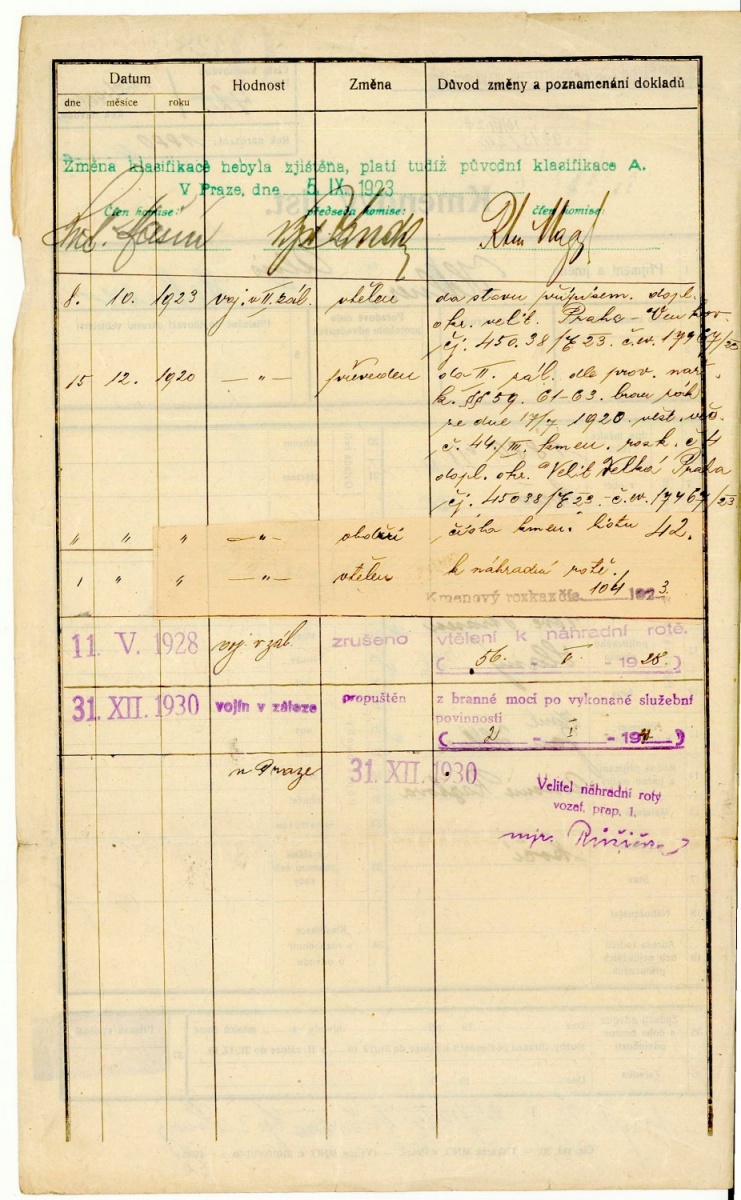 Datum Hodnost Změna Důvod změny a poznamenání dokladů
dne měsíce roku
Změna klasifikace nebyla zjištěna, platí tudíž původní klasifikace A.
V Praze, dne 5. IX. 1923
Člen komise: předseda komise: člen komise:
8. 10. 1923 voj. v II. zál. vtělen do stavu přípisem. dopl.
okr. velit. Praha - Venkov.
čj. 45038/E23. č.ev. 17967/23
15 12. 1920 — " — převeden do II. zál. dle prov. nař.
k. §§ 59. 61-63. bran. řád
ze dne 17/7 1920 věst. věc.
č. 44./III. kmen. rozk. č. 4
dopl. okr. Velit. Velká Praha
čj. 45038/E23 - č.ev. 17967/23
" " " — " — obdržel číslo kmen. listu 42.
1 " " — " — vtělen k náhradní rotě.
Kmenový rozkaz čís. 104 1923.
11. V. 1928 voj. v zál. zrušeno vtělení k náhradní rotě.
( 56. - V. - 1928. )
31. XII. 1930 vojín v záloze propuštěn z branné moci po vykonané služební
povinnosti
( 2 - I - 193 )
v Praze 31. XII. 1930
Velitel náhradní roty
vozat. prap. 1.
mjr. Růžička